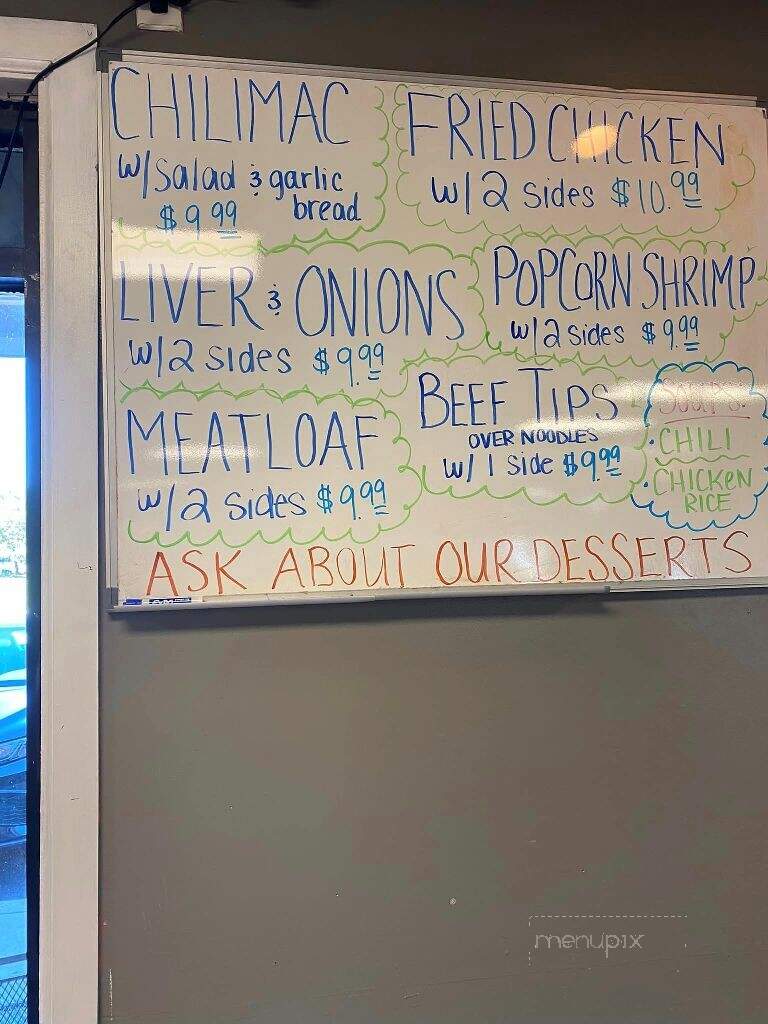 CHILIMAC
w/salad & garlic
bread
$9.99
FRIED CHICKEN
w/2 sides $10.99
LIVER & ONIONS
w/2 sides $9.99
POPCORN SHRIMP
w/2 sides $9.99
MEATLOAF
w/2 sides $9.99
BEEF TIPS
OVER NOODLES
w/1 side $9.99
SOUPS:
• CHILI
• CHICKEN
RICE
ASK ABOUT OUR DESSERTS
menupix